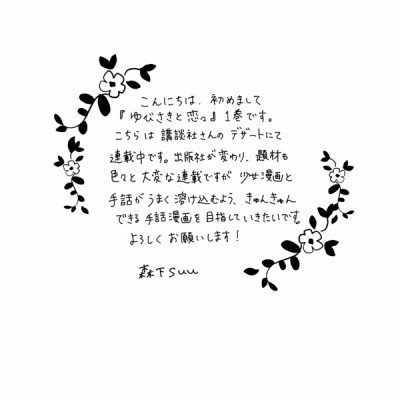 こんにちは、初めまして
『ゆびさきと恋々』1巻です。
こちらは講談社さんのデザートにて
連載中です。出版社が変わり、題材も
色々と大変な連載ですが少女漫画と
手話がうまく溶け込むよう、きゅんきゅん
できる手話漫画を目指していきたいです。
よろしくお願いします!
森下suu